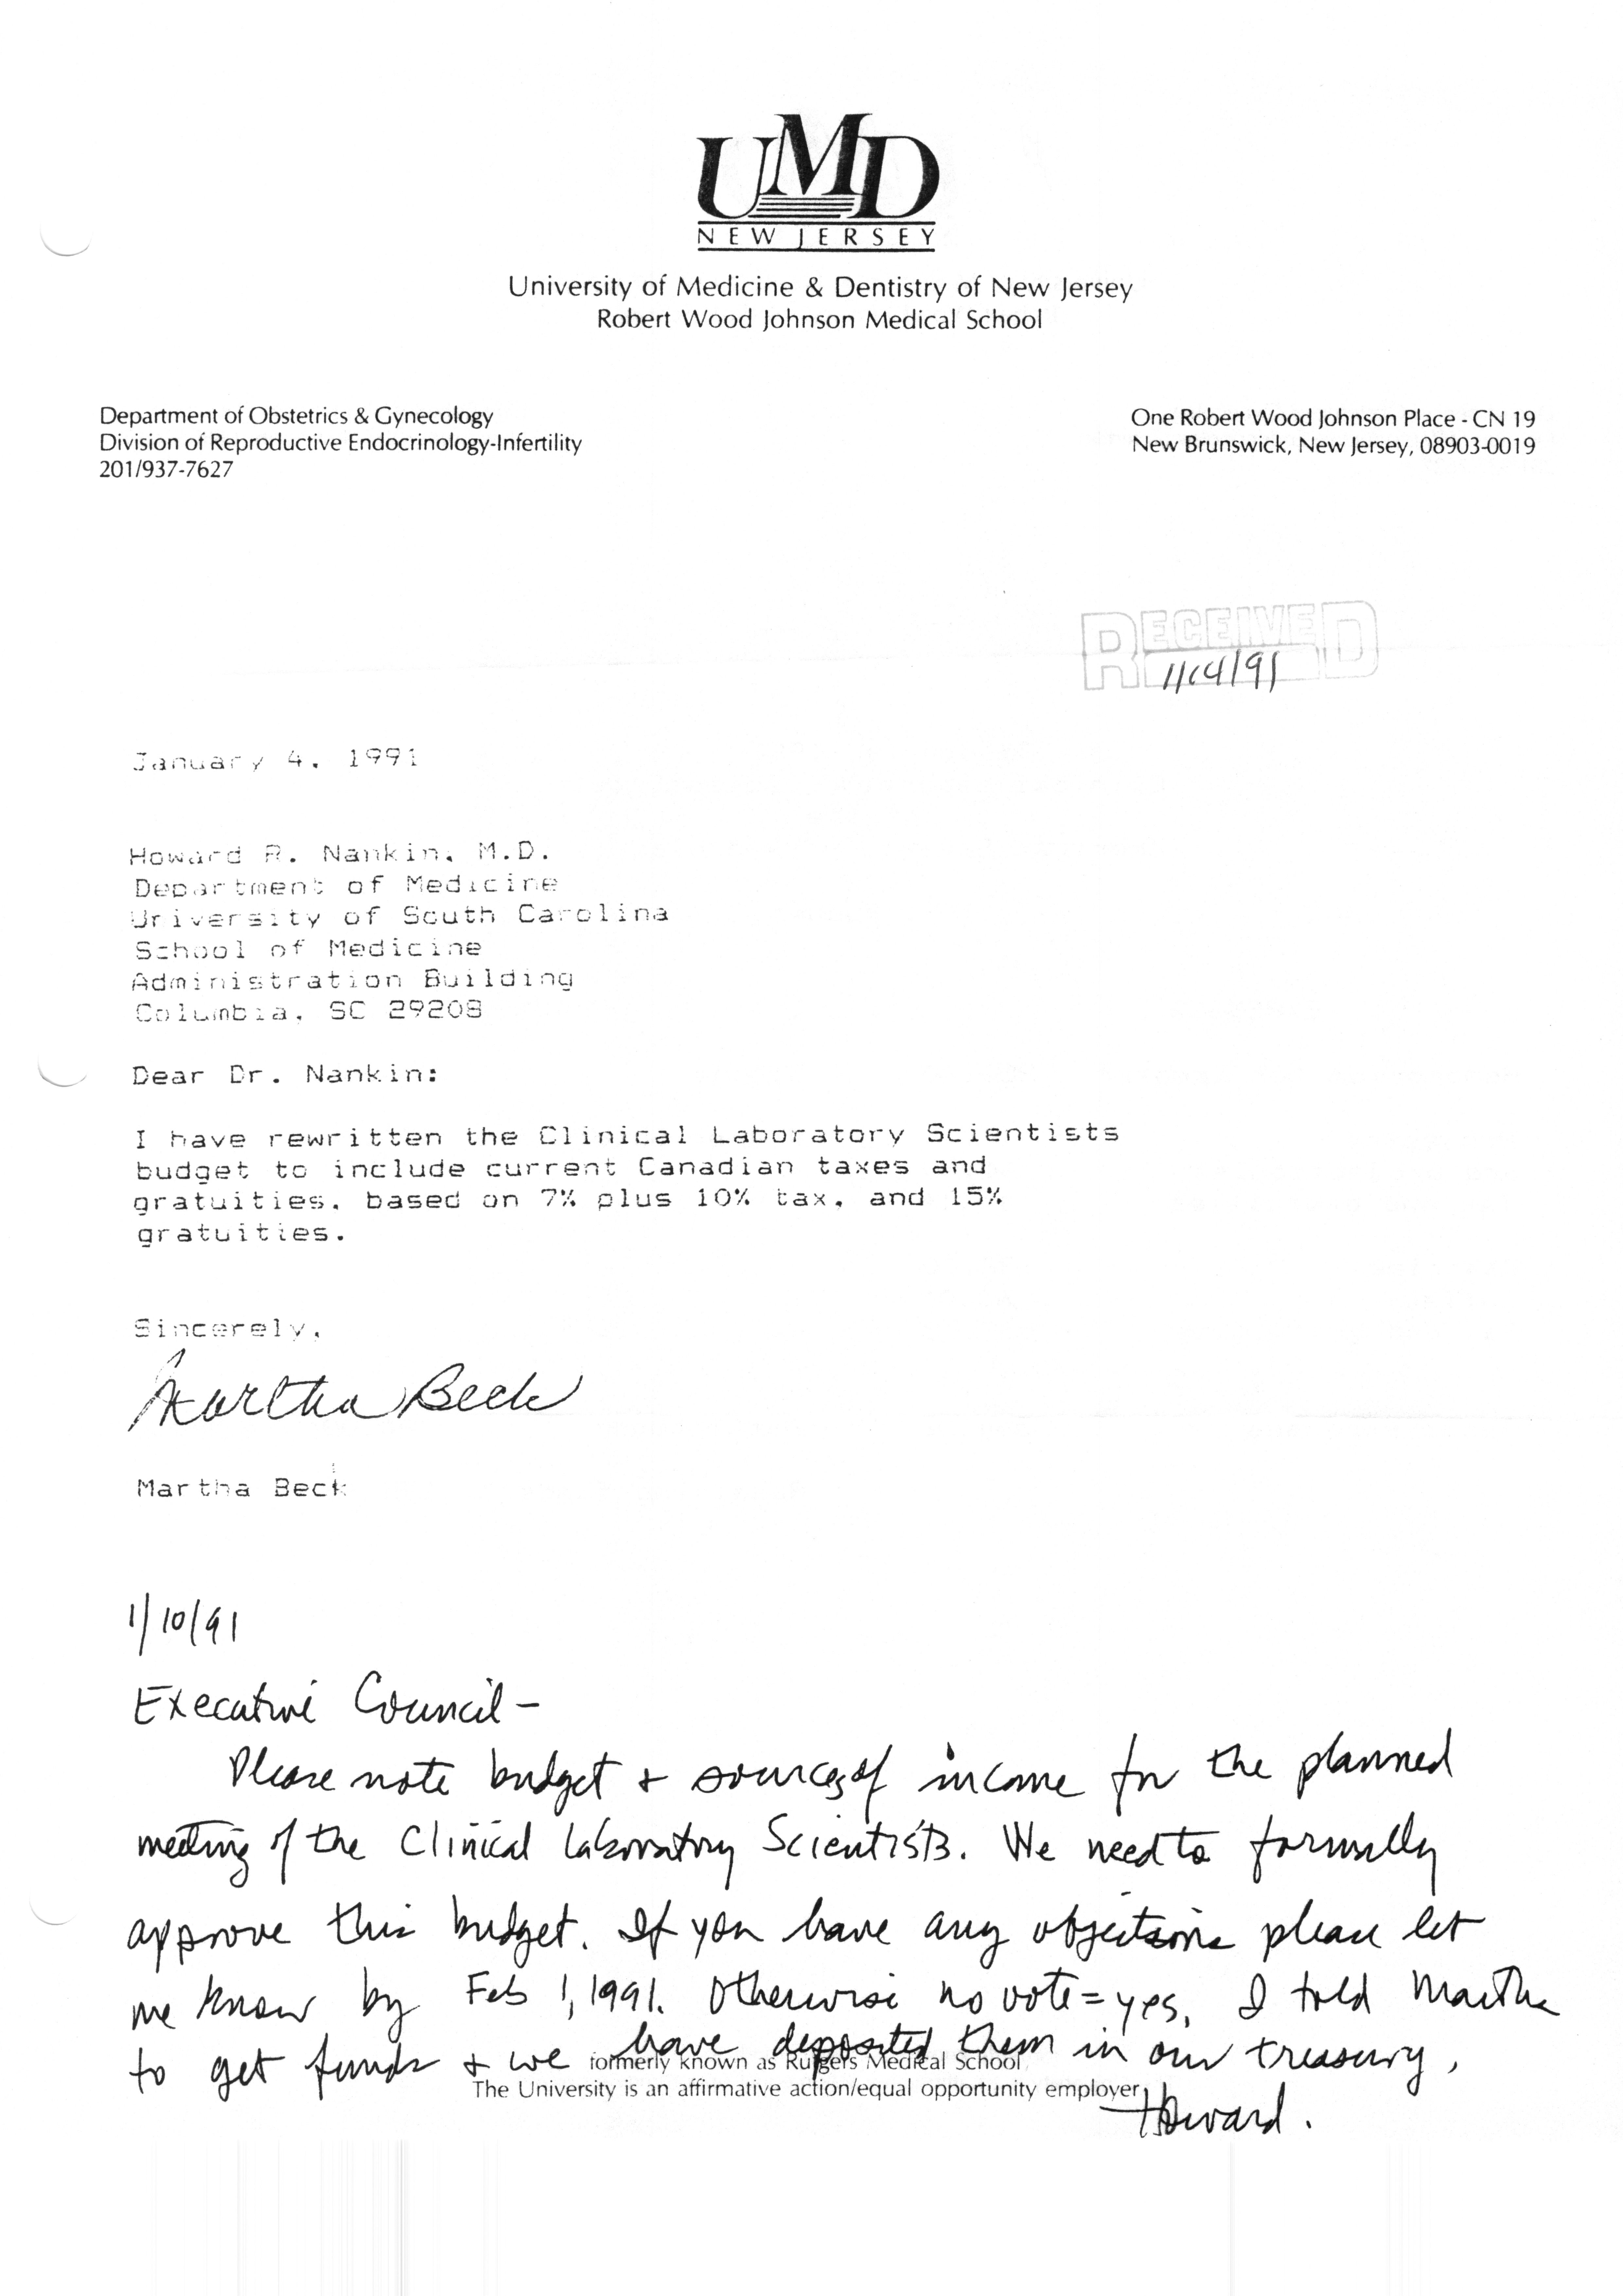 UMD
NEW JERSEY
University of Medicine & Dentistry of New Jersey
Robert Wood Johnson Medical School
Department of Obstetrics & Gynecology
Division of Reproductive Endocrinology-Infertility
201/937-7627
One Robert Wood Johnson Place - CN 19
New Brunswick, New Jersey, 08903-0019
RECEIVED
1/14/91
January 4, 1991
Howard R. Nankin, M.D.
Department of Medicine
University of South Carolina
School of Medicine
Administration Building
Columbia, SC 29208
Dear Dr. Nankin:
I have rewritten the Clinical Laboratory Scientists
budget to include current Canadian taxes and
gratuities, based on 7% plus 10% tax, and 15%
gratuities.
Sincerely,
Martha Beck
Martha Beck
1/10/91
Executive Council -
Please note budget + sources of income for the planned
meeting of the Clinical Laboratory Scientists. We need to formally
approve this budget. If you have any objections please let
me know by Feb 1, 1991. Otherwise no vote = yes. I told Martha
to get funds + we have deposited them in our treasury.
formerly known as Rutgers Medical School
The University is an affirmative action/equal opportunity employer
Howard.